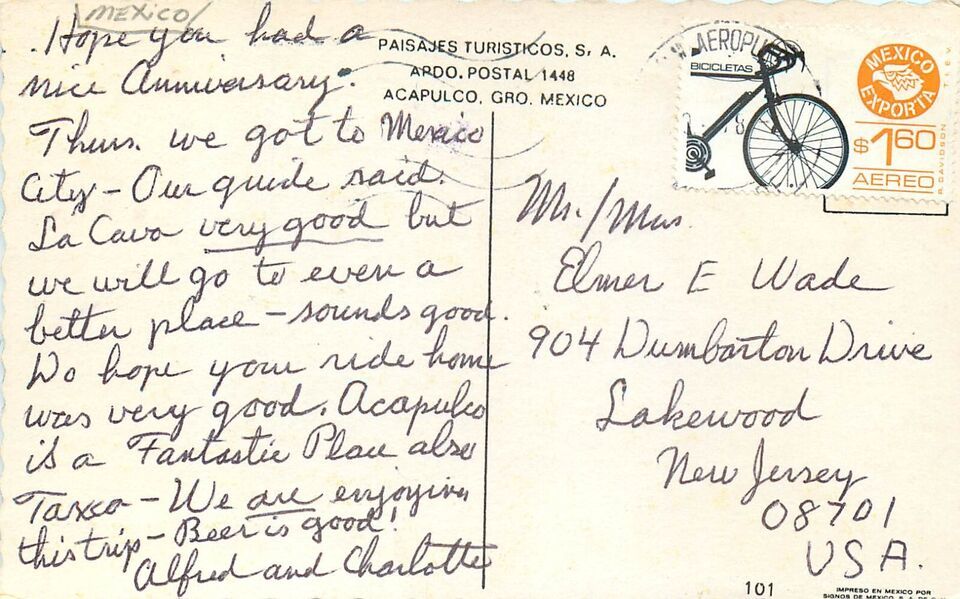 MEXICO
Hope you had a
nice Anniversary.
Thurs. we got to Mexico
City - Our guide said.
La Cava very good but
we will go to even a
better place - sounds good.
Do hope your ride home
was very good. Acapulco
is a Fantastic Place also
Taxco - We are enjoying
this trip - Beer is good!
Alfred and Charlotte
PAISAJES TURISTICOS, S. A.
APDO. POSTAL 1448
ACAPULCO, GRO. MEXICO
AEROPU
BICICLETAS
MEXICO
EXPORTA
$1.60
AEREO
P. DAVIDSON
T.E.V.
Mr./Mrs.
Elmer E Wade
904 Dumbarton Drive
Lakewood
New Jersey
08701
USA.
101
IMPRESO EN MEXICO POR
SIGNOS DE MEXICO, S. A.